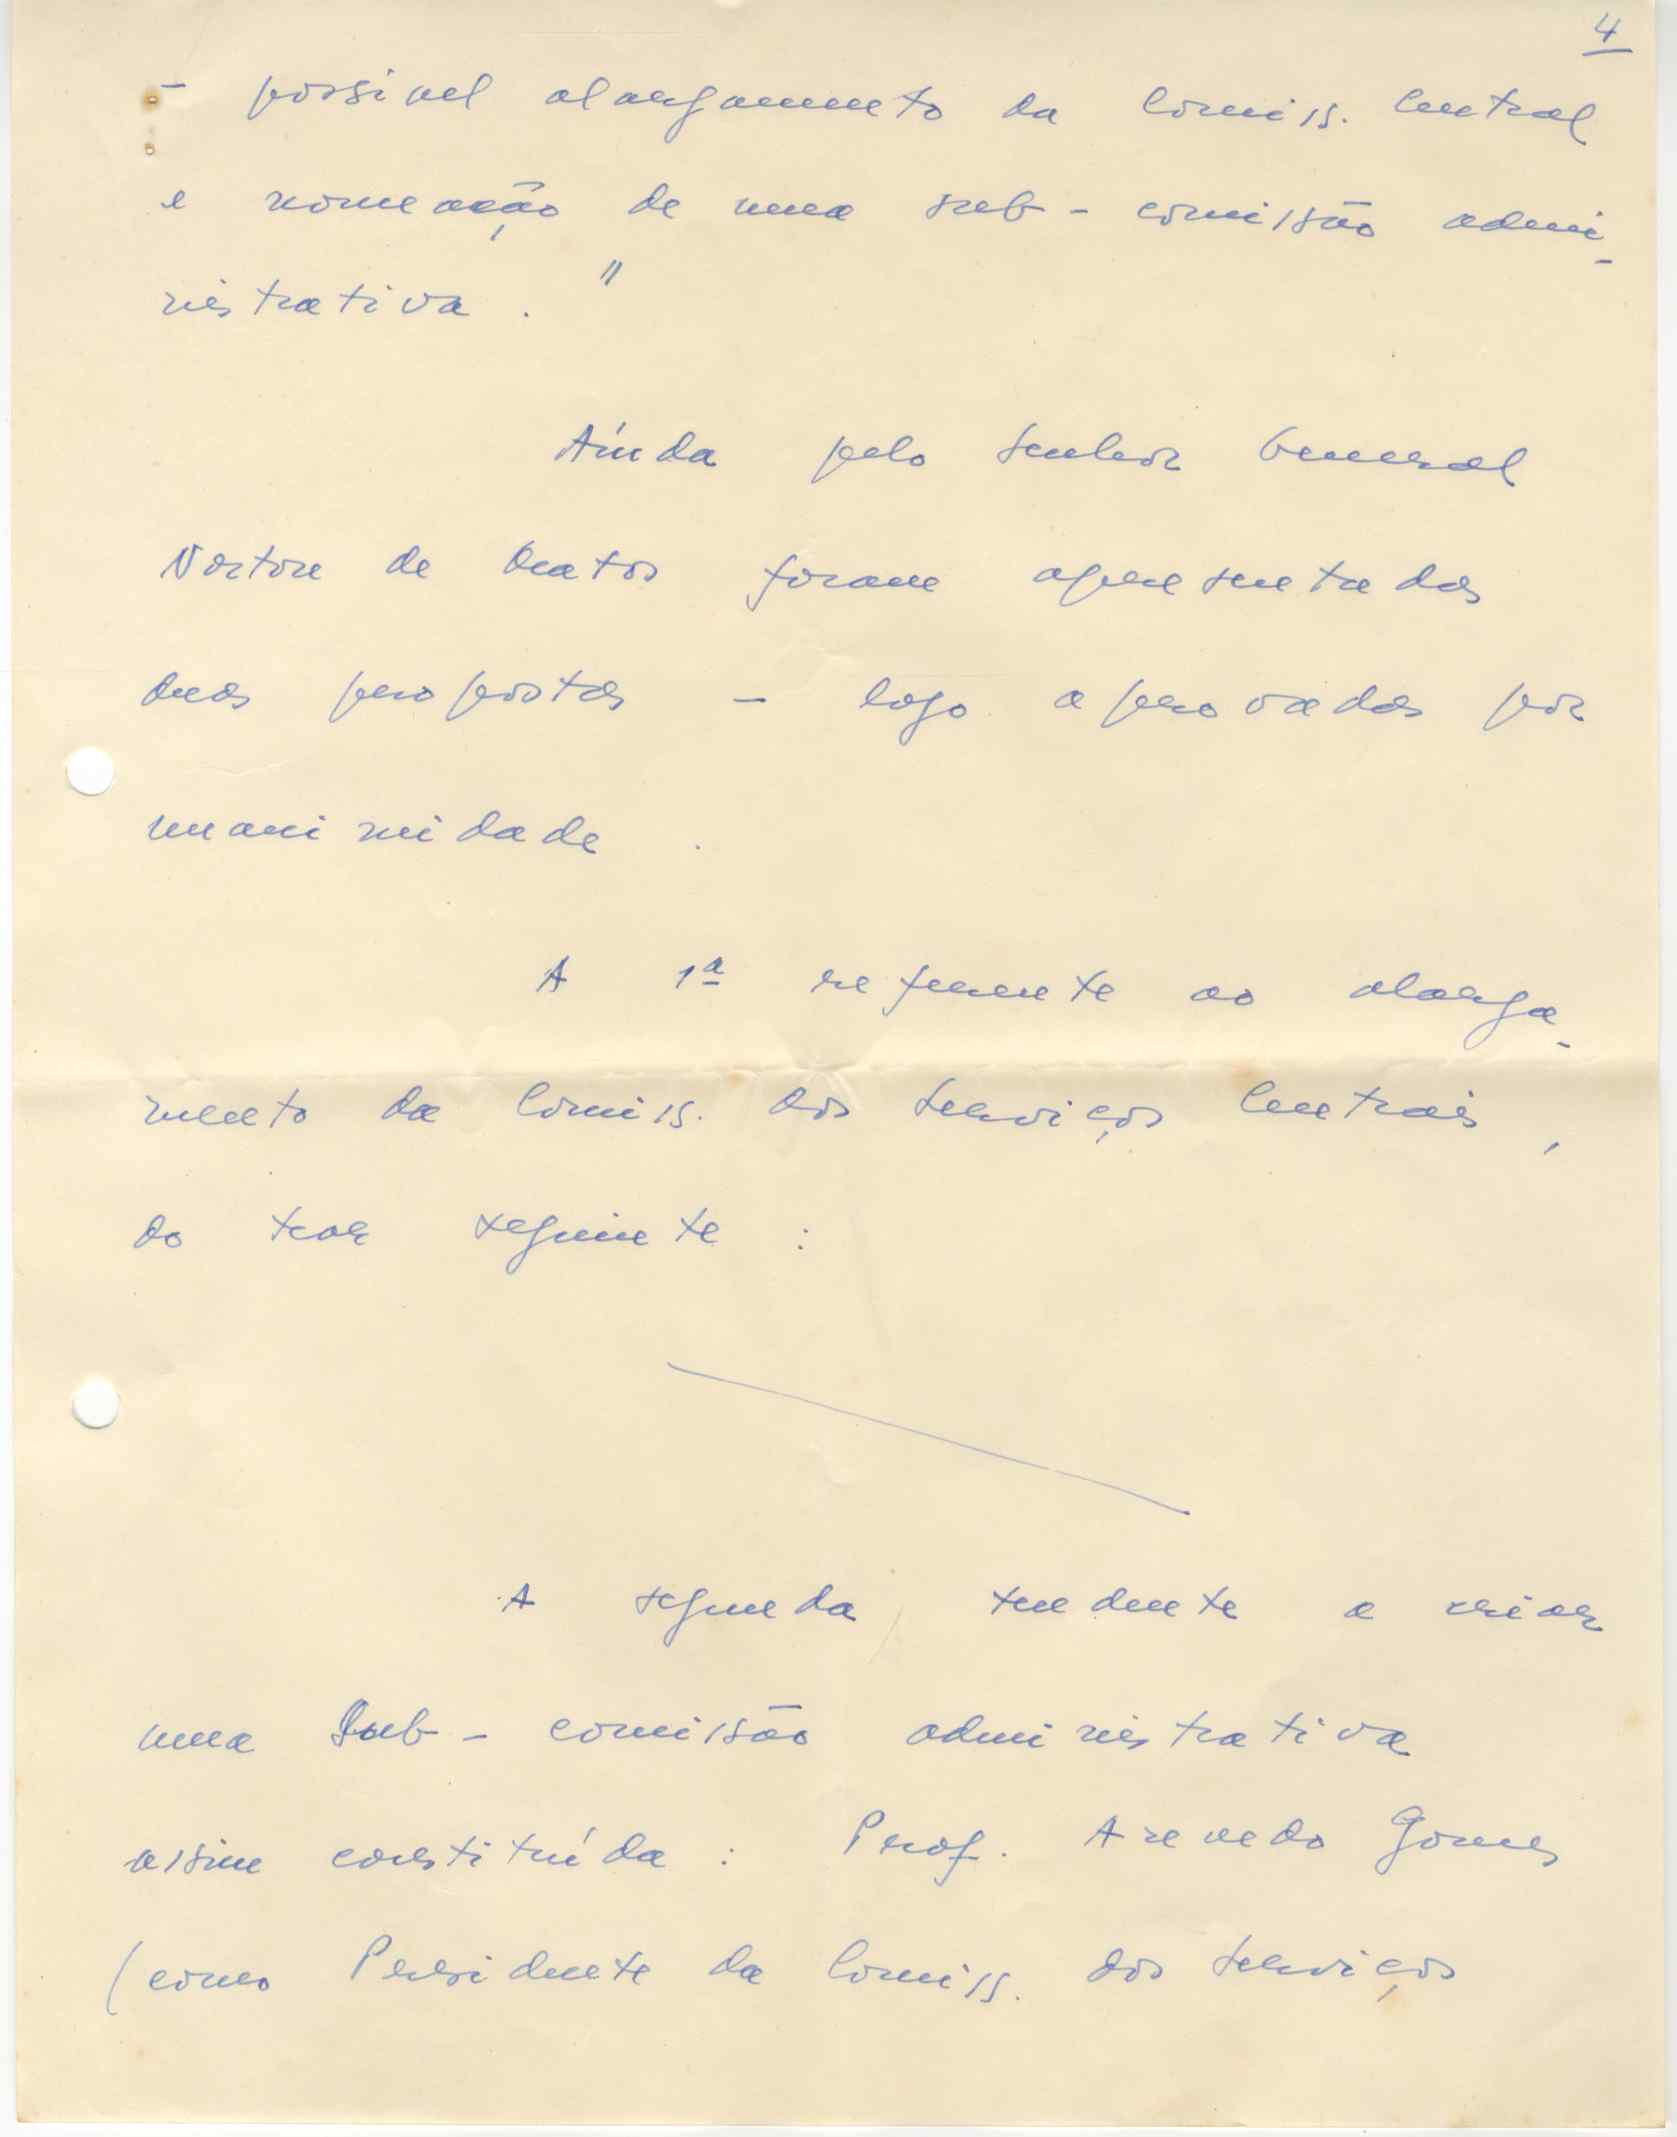 4
- possivel alargamento da Comiss. Central
e nomeação de uma sub-comissão admi-
nistrativa."
Aínda pelo Senhor General
Norton de Matos foram apresentadas
duas propostas - logo aprovadas por
unanimidade.
A 1ª referente ao alarga-
mento da Comiss. dos Serviços Centrais,
do teor seguinte :
A segunda tendente a criar
uma Sub-comissão administrativa
assim constituída : Prof. Azevedo Gomes
(como Presidente da Comiss. dos Serviços